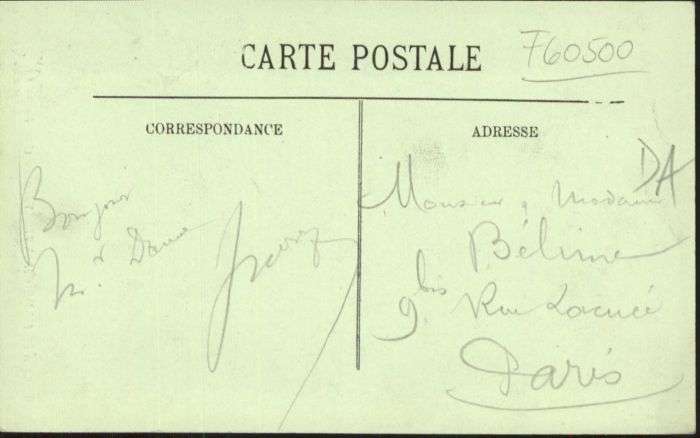 CARTE POSTALE
F60500
CORRESPONDANCE
ADRESSE
DA
Bonjour
Dame
Monsieur & Madame
Béline
9 bis Rue Lacuée
Paris